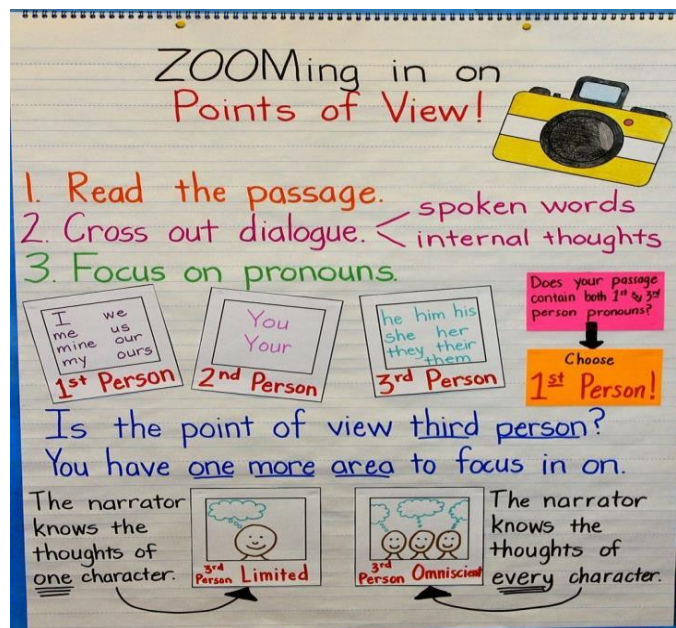 ZOOMing in on
Points of View!
1. Read the passage.
2. Cross out dialogue.
spoken words
internal thoughts
3. Focus on pronouns.
I we
me us
mine our
my ours
1st Person
You
Your
2nd Person
he him his
she her
they their
them
3rd Person
Does your passage
contain both 1st & 3rd
person pronouns?
Choose
1st Person!
Is the point of view third person?
You have one more area to focus in on.
The narrator
knows the
thoughts of
one character.
3rd
Person Limited
3rd
Person Omniscient
The narrator
knows the
thoughts of
every character.